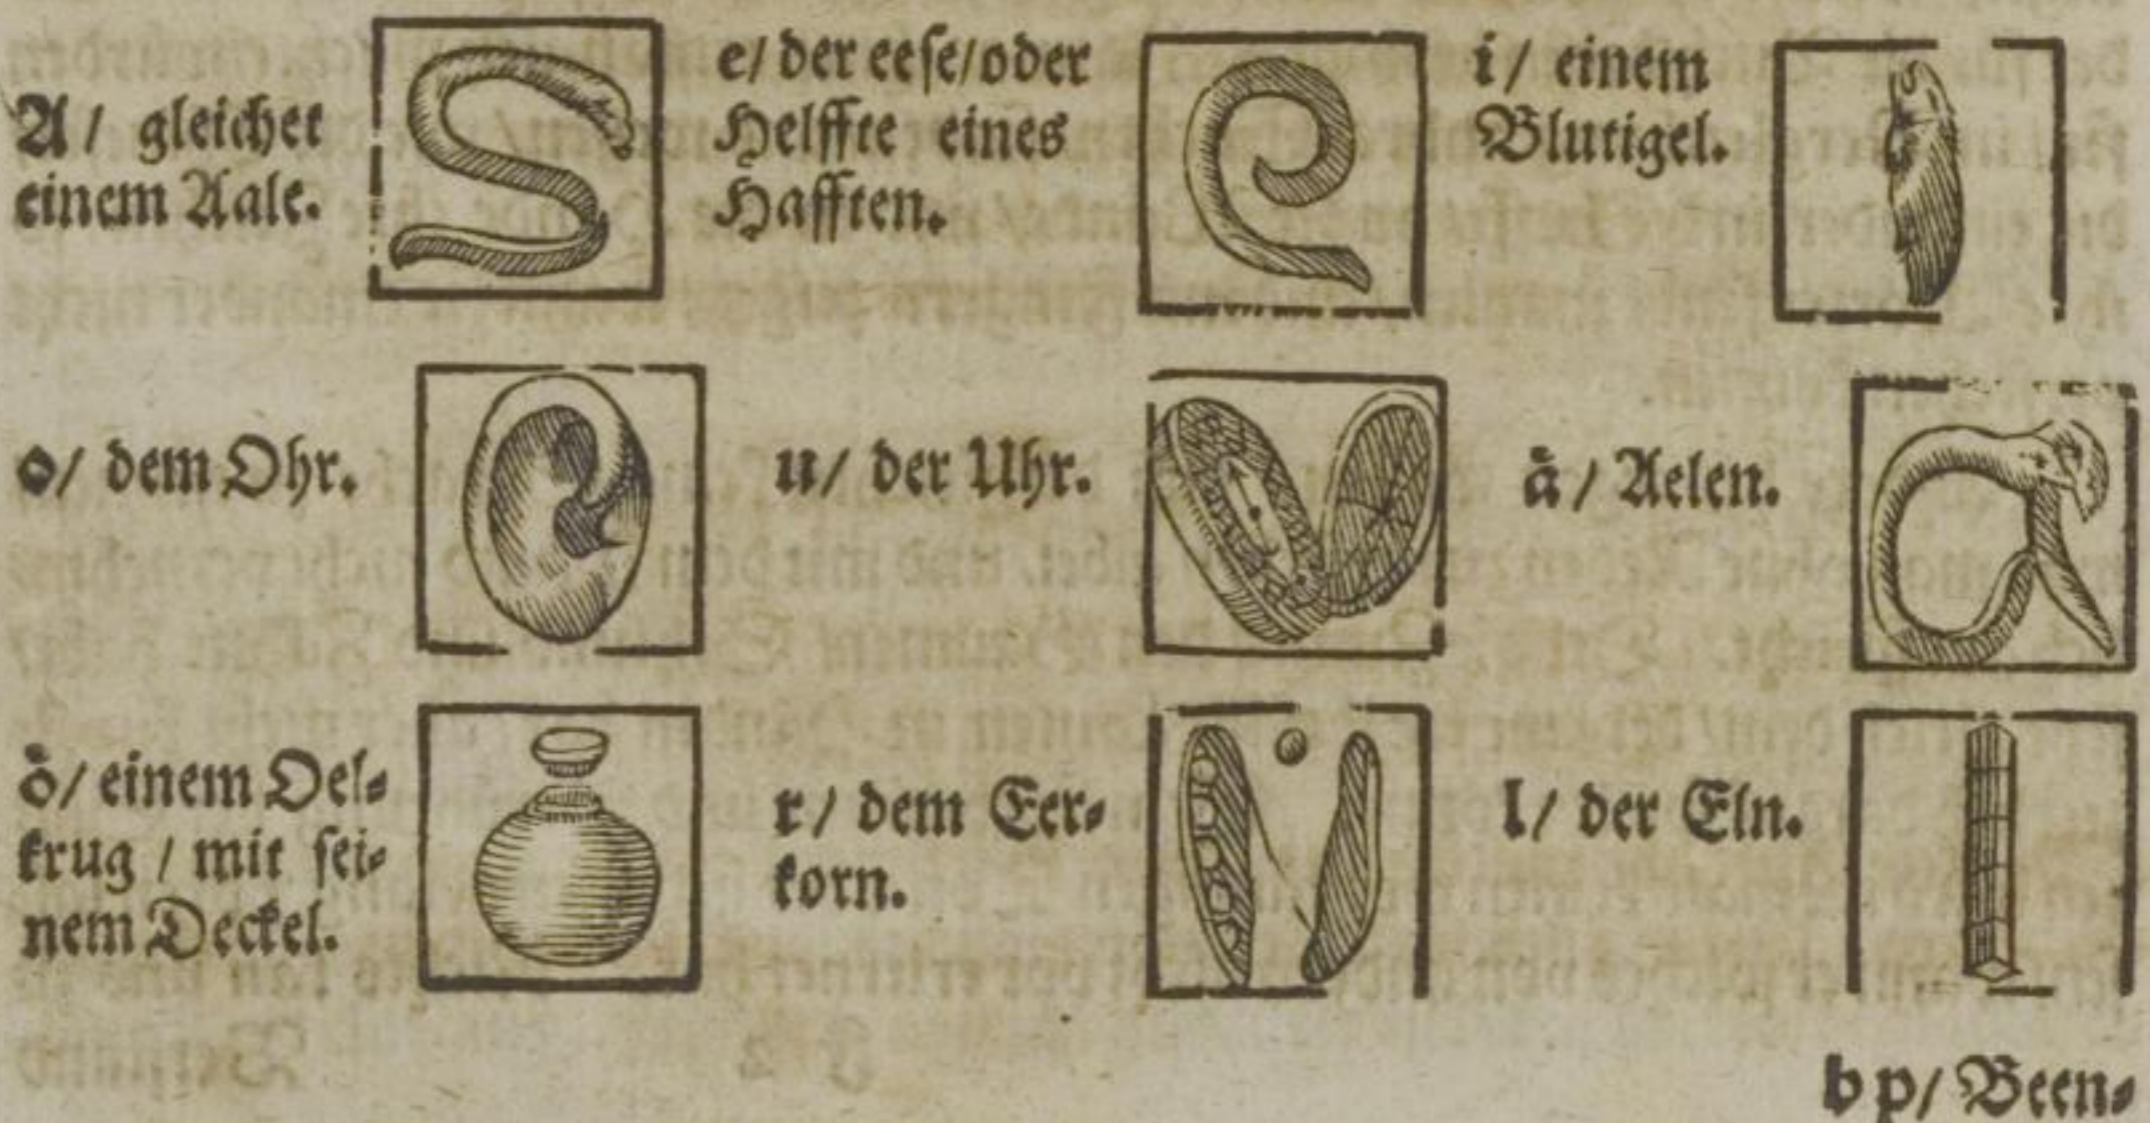 A/ gleichet
einem Aale.
e/ der eese/oder
Helffte eines
Hafften.
i/ einem
Blutigel.
o/ dem Ohr.
u/ der Uhr.
aͤ/ Aelen.
oͤ/ einem Oel⸗
krug / mit sei⸗
nem Deckel.
r/ dem Eer⸗
korn.
l/ der Eln.
b p/ Been⸗